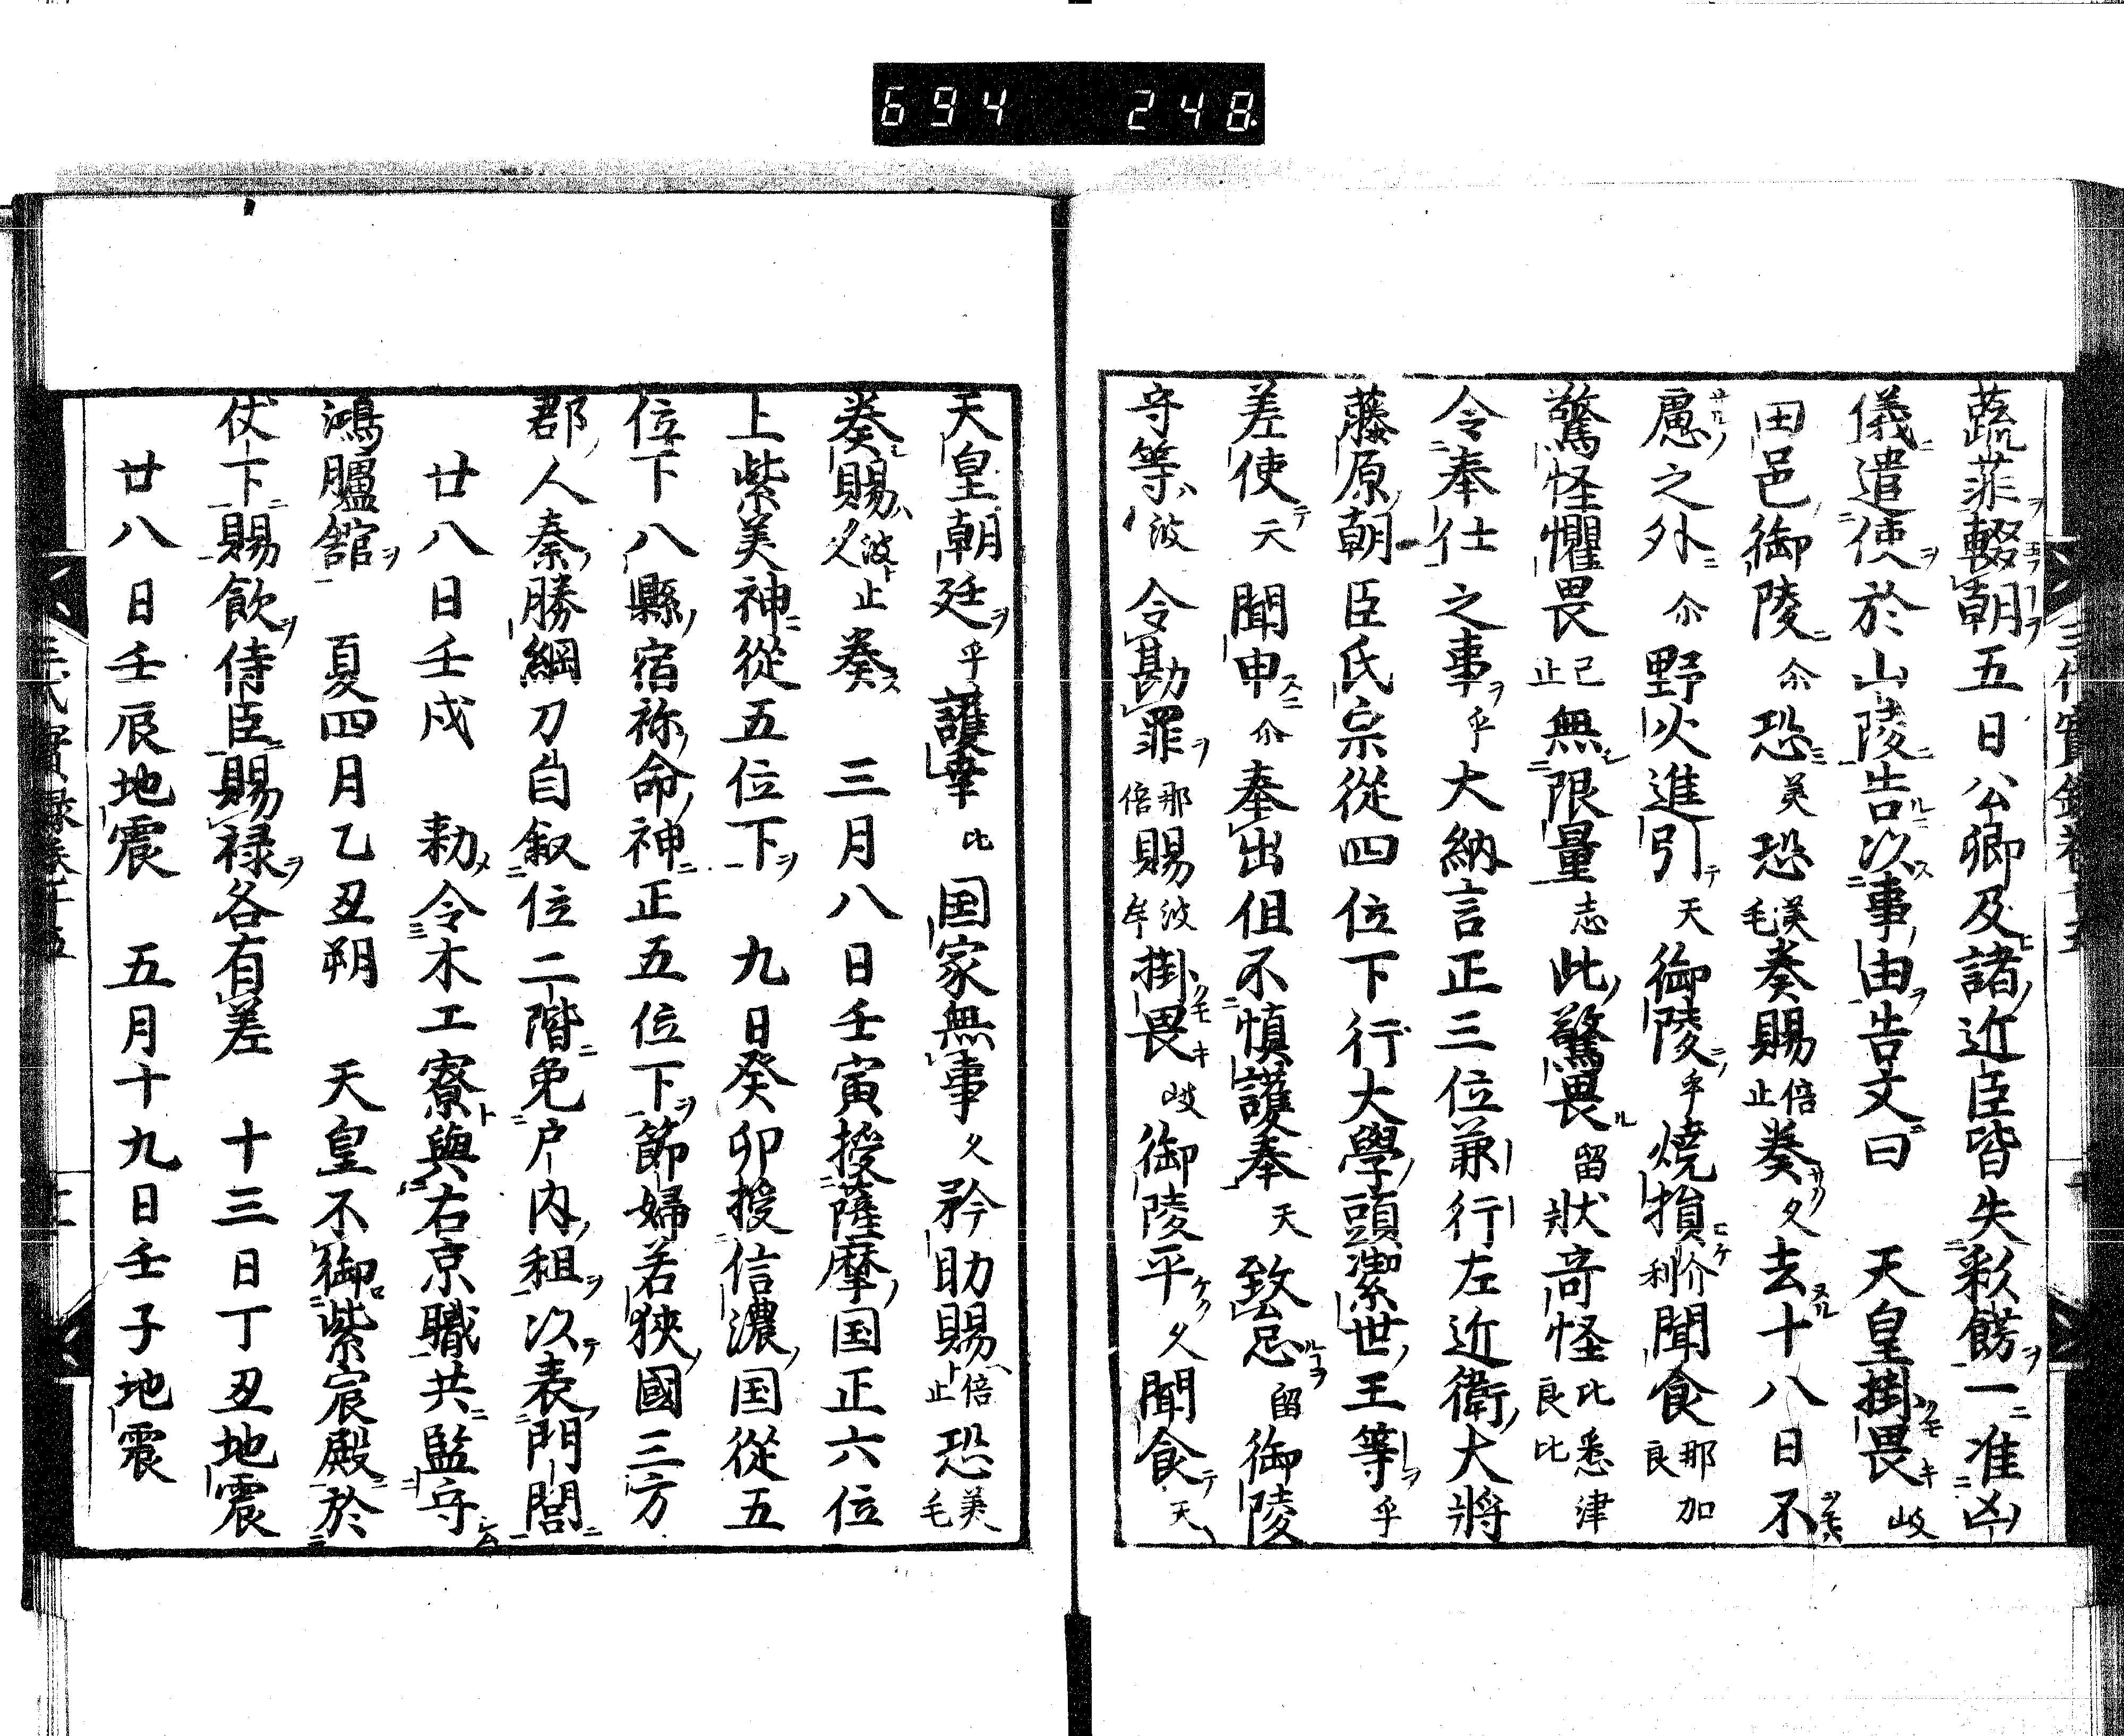 694 248
蔬菲輟朝五日公卿及諸近臣皆失彩餝一准凶
儀遣使於山陵告以事由告文曰 天皇掛畏岐
田邑御陵尒恐美恐美毛奏賜倍止奏久去十八日不
慮之外尒野火進引天御陵乎燒損介利聞食那加良
驚怪懼畏己止無限量志此驚畏留狀奇怪比悉津良比
令奉仕之事乎大納言正三位兼行左近衛大將
藤原朝臣氏宗從四位下行大學頭潔世王等乎
差使天聞申尒奉出但不慎護奉天致怠留御陵
守等波令勘罪那倍賜波牟掛畏岐御陵平久聞食天
天皇朝廷乎護幸比国家無事久矜助賜倍止恐美毛
奏賜波久止奏 三月八日壬寅授薩摩国正六位
上紫美神從五位下 九日癸卯授信濃国從五
位下八縣宿祢命神正五位下節婦若狹國三方
郡人秦勝綱刀自叙位二階免户内租以表門閭
廿八日壬戌 勅令木工寮與右京職共監守
鴻臚舘 夏四月乙丑朔 天皇不御紫宸殿於
仗下賜飲侍臣賜禄各有差 十三日丁丑地震
廿八日壬辰地震 五月十九日壬子地震